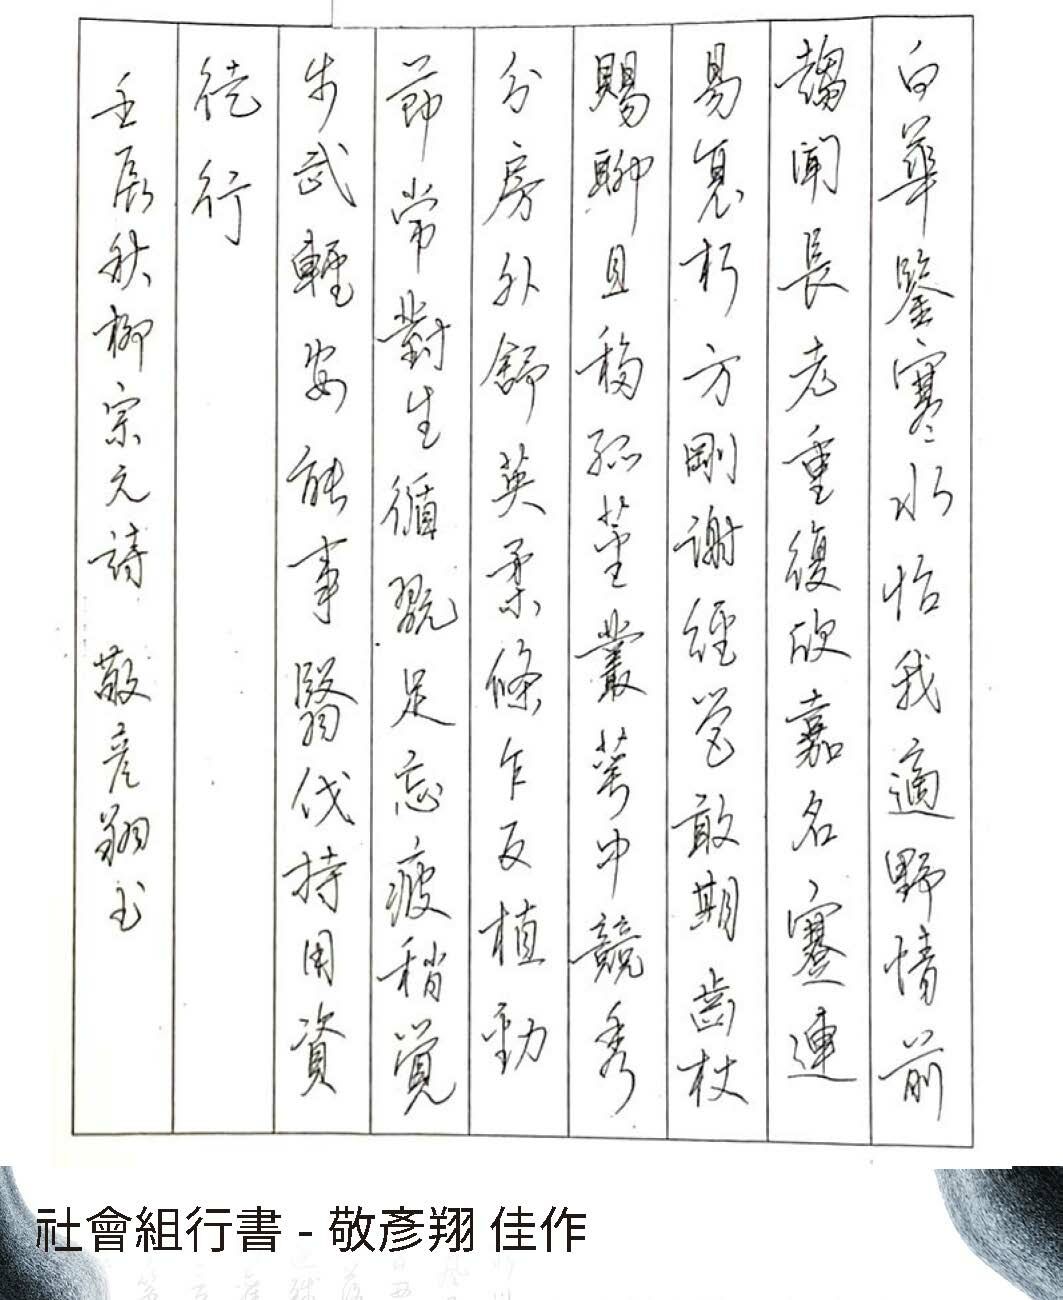 白華鑒寒水怡我適野情前
趨聞長老重復欣嘉名蹇連
易衰朽方剛謝經營敢期齒杖
賜聊且移孤莖叢萼中競秀
分房外舒英柔條乍反植勁
節常對生循翫足忘疲稍覺
步武輕安能事翳伐持用資
徒行
壬辰秋柳宗元詩 敬彥翔书
社會組行書 - 敬彥翔 佳作